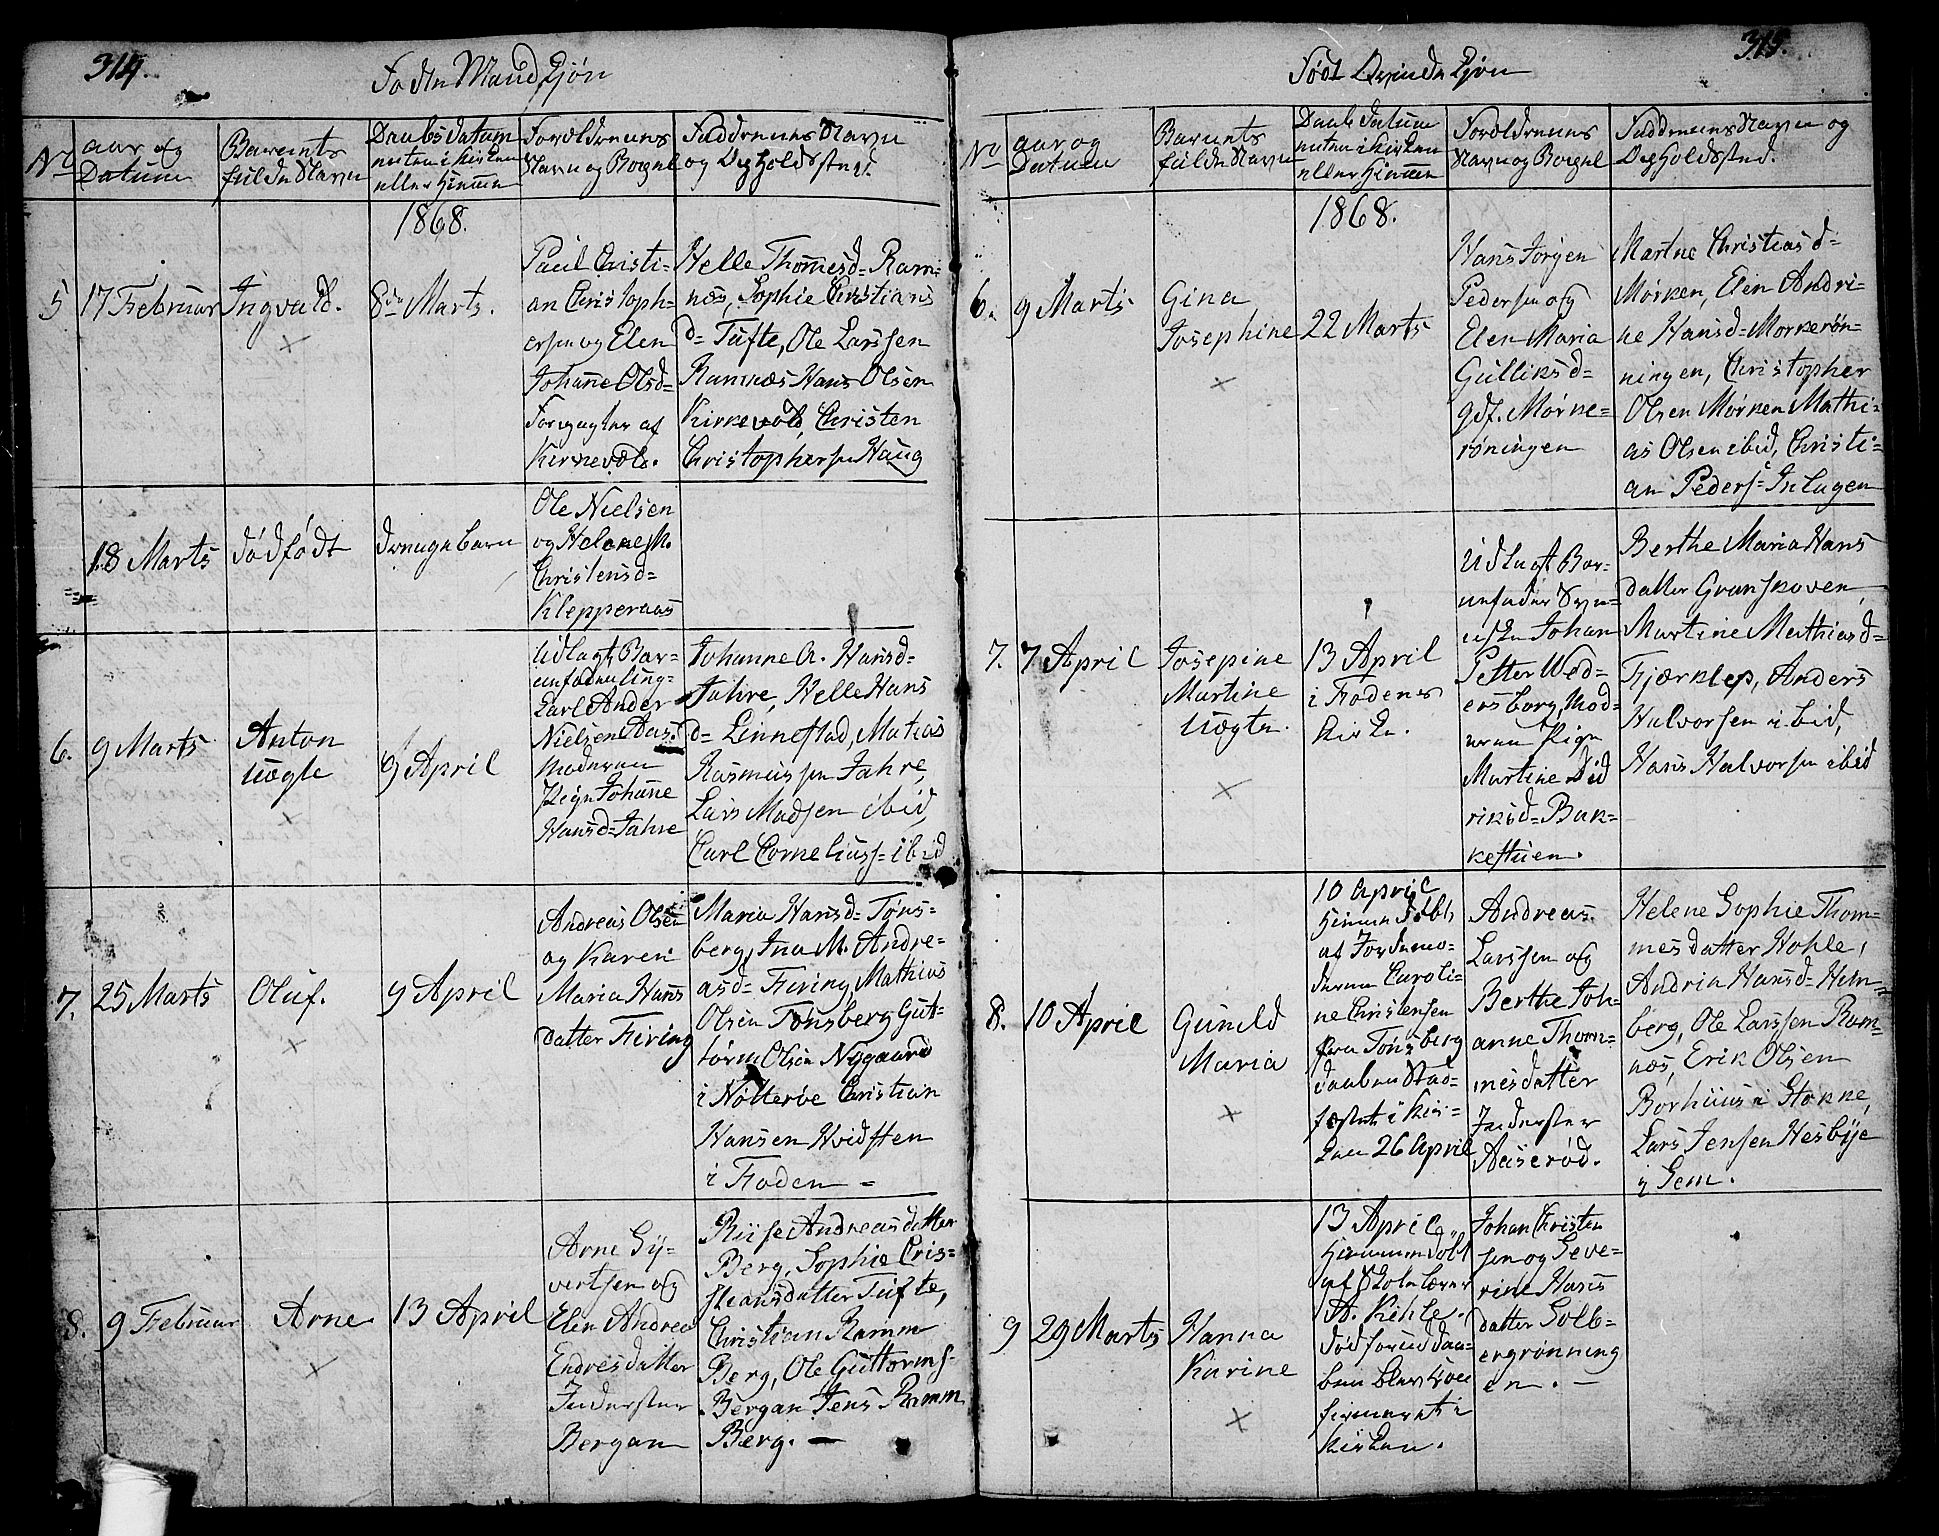 314.
Fødte Mandkjøn
No
aar og
Datum
Barnets
fulde Navn
Daabsdatum
enten i Kirken
eller Hiemme
Forældrenes
Navn og Bopæl
Faddrenes Navn
og Opholdssted.
1868.
5
17 Februar
Ingvald.
8de Marts.
Paul Cristi-
an Christoph-
ersen og Elen
Johanne Olsd=
Forpagter af
Kirkevold.
Helle Thomesd= Ram-
næs, Sophie Christians
d= Tufte, Ole Larssen
Ramnæs Hans Olsen
Kirkevold, Christen
Christophersen Haug
18 Marts
dødfødt
drengebarn
Ole Nielsen
og Helene M.
Christensd=
Klepperaas
6.
9 Marts
Anton
uægte
9 April
Udlagt Bar-
nefader Ung-
Carl Ander
Nielsen Aas.
Moderen
Pige Johane
Hansd= Jahre
Johanne A. Hansd=
Jahre, Helle Hans
d= Linnestad, Matias
Rasmussen Jahre,
Lars Madsen ibid,
Carl Corneliuss= ibid
7.
25 Marts
Oluf.
9 April
Andreas Olsen
og Karen
Maria Hans
datter Firing
Maria Hansd= Tøns-
berg, Ina M. Andre-
asd= Firing, Mathias
Olsen Tønsberg Gut-
torm Olsen Nygaard
i Nøtterøe Christian
Hansen Hvidsten
i Foden =
8.
9 Februar
Arne
13 April
Arne Sy-
vertsen og
Elen Andrea
Endresdatter
Inderster
Bergan
Riise Andreasdatter
Berg, Sophie Cris-
tiansdatter Tufte,
Christian Ramm
Berg, Ole Guttorms-
Bergan Jens Ramm
Berg. —
315.
Født Qvindekjøn
No
aar og
Datum
Barnets
fulde Navn
Daabs Datum
enten i Kirken
eller Hiemmen
Forældrenes
Navn og Bopæl
Faddrenes Navn og
Opholdssted.
1868.
6.
9 Marts
Gina
Josephine
22 Marts
Hans Jørgen
Pedersen og
Elen Maria
Gulliksd=
gdf. Mørke-
røningen
Martne Christiasd=
Mørken, Elen Andri-
ne Hansd= Morkerøn-
ningen, Christopher
Olsen Mørken Mathi-
as Olsen ibid, Christi-
an Peders= Inlagen
7.
7 April
Josepine
Martine
uægte.
13 April
i Fodens
Kirke.
Udlagt Bar-
nefader Sven-
ske Johan
Petter Wed-
ersborg, Mod-
eren Pige
Martine Did
riksd= Bak-
kestuen.
Berthe Maria Hans
datter Granskoven,
Martine Mathiasd=
Fjærklep, Anders
Halvorsen ibid,
Hans Halvorsen ibid
8.
10 April
Gunild
Maria
10 April
hiemmedøbt
af Jordemo-
deren Caroli-
ne Christensen
fra Tønsberg
daaben stad-
fæstet i Kir-
ken 26 April
Andreas
Larssen og
Berthe Joh-
anne Thom-
mesdatter
Inderster
Aaserød.
Helene Sophie Thom-
mesdatter Hohle,
Andria Hansd= Hem-
berg, Ole Larssen Ram-
næs, Erik Olsen
Borhuus i Stokke,
Lars Jensen Hesbye
i Sem.
9
29 Marts
Hanna
Karine
13 April
hiemmedøbt
af Skolelærer
A. Kihle.
død forend daa-
ben blev con
firmeret i
Kirken.
Johan Christen
sen og Seve-
rine Hans
datter Solb-
ergrønning
en. —